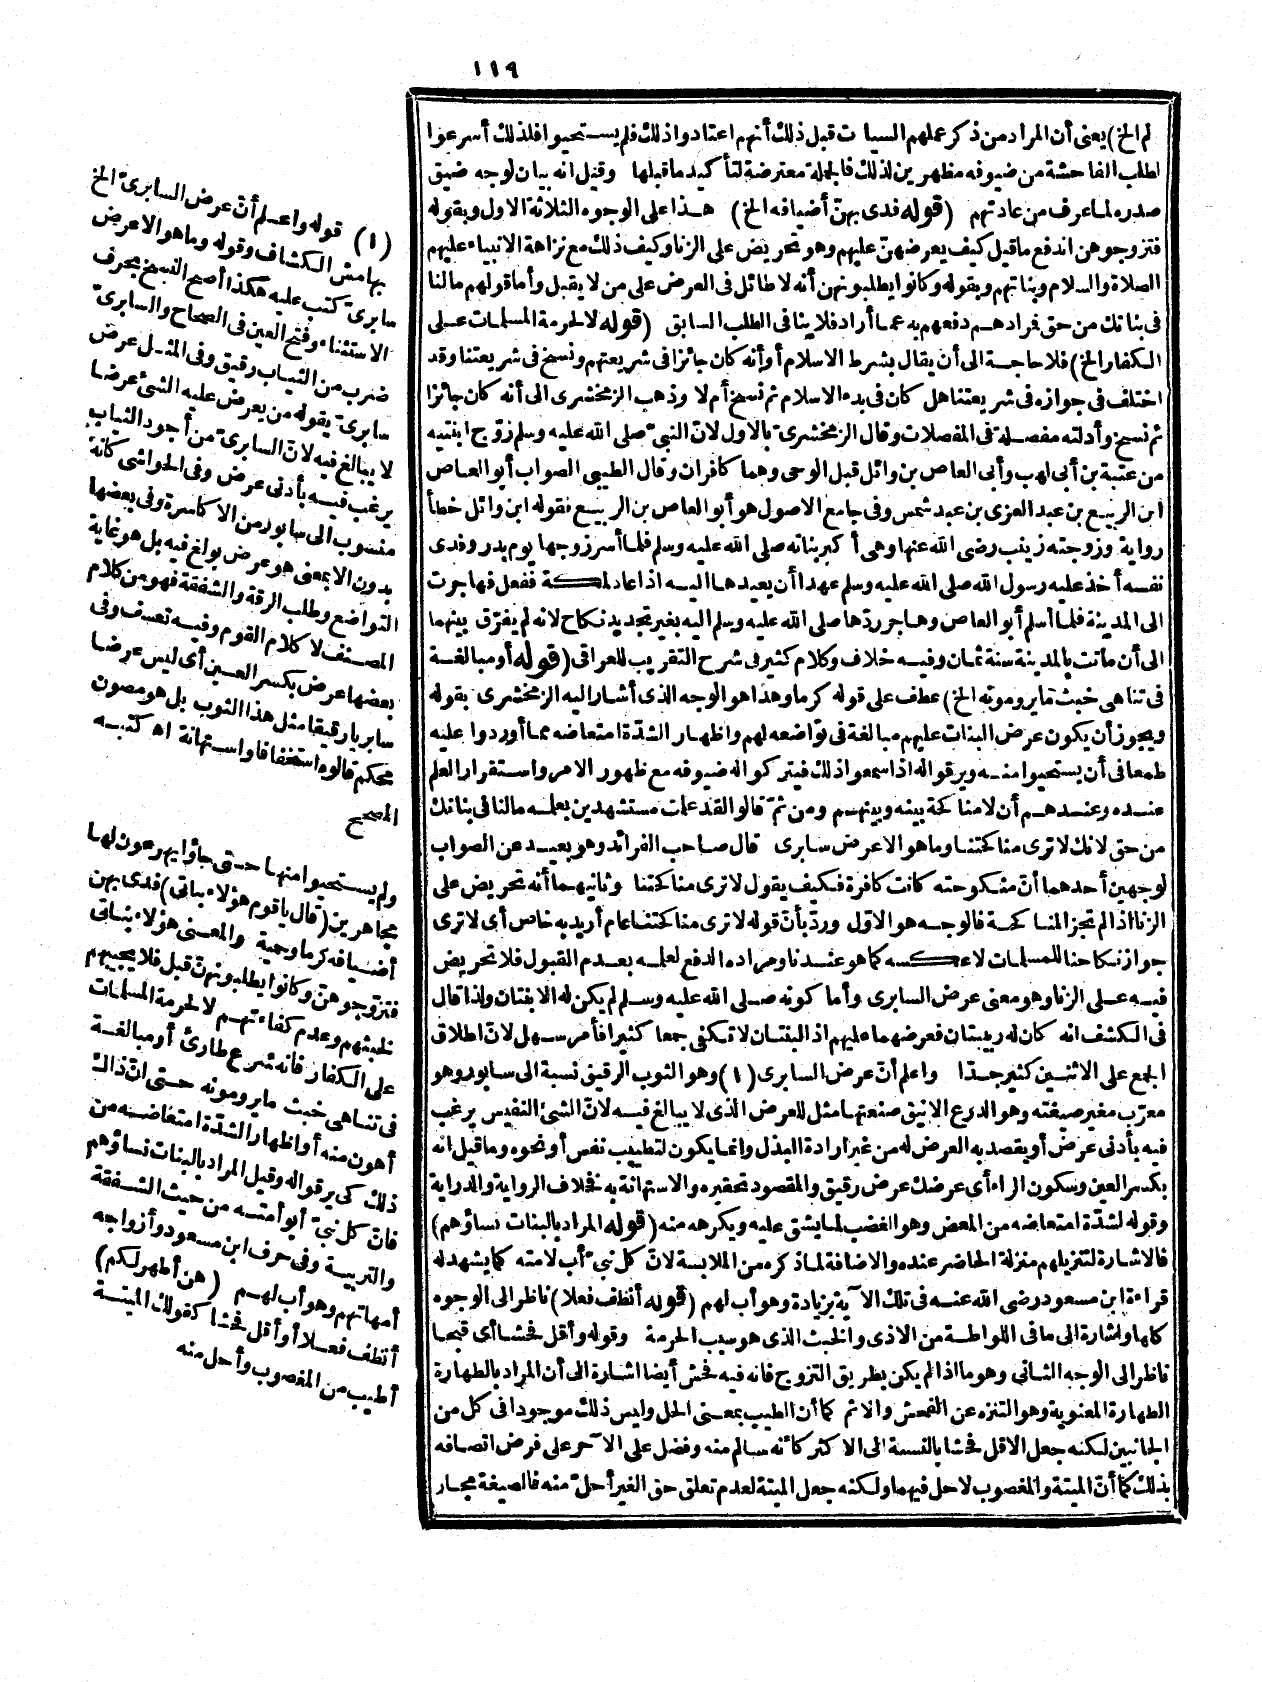 ١١٩
لم الخ) يعنى أن المراد من ذكر عملهم السيا ت قبل ذلك أنهم اعتادوا ذلك فلم يستحيوا فلذلك أسرعوا
لطلب الفاحشة من ضيوفه مظهرين لذلك فالجملة معترضة لتأكيد ما قبلها وقيل انه بيان لوجه ضيق
صدره لما عرف من عادتهم (قوله فدى بهنّ أضيافه الخ) هذا على الوجوه الثلاثة الاول وبقوله
فتزوجوهن اندفع ما قيل كيف يعرضهنّ عليهم وهو تحريض على الزنا وكيف ذلك مع نزاهة الانبياء عليهم
الصلاة والسلام وبناتهم وبقوله وكانوا يطلبونهن أنه لا طائل فى العرض على من لا يقبل وأما قولهم مالنا
فى بناتك من حق فرادهم دفعهم به عما أراد فلا ينافى الطلب السابق (قوله لا لحرمة المسلمات على
الكفار الخ) فلا حاجة الى أن يقال بشرط الاسلام أو أنه كان جائزا فى شريعتهم ونسخ فى شريعتنا وقد
اختلف فى جوازه فى شريعتنا هل كان فى بدء الاسلام ثم نسخ أم لا وذهب الزمخشرى الى أنه كان جائزا
ثم نسخ وأدلته مفصلة فى المفصلات وقال الزمخشرىّ بالاول لانّ النبىّ صلى الله عليه وسلم زوّج ابنتيه
من عتبة بن أبى لهب وأبى العاص بن وائل قبل الوحى وهما كافران وقال الطيبى الصواب أبو العاص
ابن الربيع بن عبد العزى بن عبد شمس وفى جامع الاصول هو أبو العاص بن الربيع فقوله ابن وائل خطأ
رواية وزوجته زينب رضى الله عنها وهى أكبر بناته صلى الله عليه وسلم فلما أسر زوجها يوم بدر وفدى
نفسه أخذ عليه رسول الله صلى الله عليه وسلم عهدا أن يعيدها اليه اذا عاد لمكة ففعل فهاجرت
الى المدينة فلما أسلم أبو العاص وهاجر ردّها صلى الله عليه وسلم اليه بغير تجديد نكاح لانه لم يفرّق بينهما
الى أن ماتت بالمدينة سنة ثمان وفيه خلاف وكلام كثير فى شرح التقريب للعراقى (قوله أو مبالغة
فى تناهى خبث ما يرومونه الخ) عطف على قوله كرما وهذا هو الوجه الذى أشار اليه الزمخشرى بقوله
ويجوز أن يكون عرض البنات عليهم مبالغة فى تواضعه لهم واظهار الشدّة امتعاضه مما أوردوا عليه
طمعا فى أن يستحيوا منه ويرقوا له اذا سمعوا ذلك فيتركوا له ضيوفه مع ظهور الامر واستقرار العلم
عنده وعندهم أن لا مناكحة بينه وبينهم ومن ثمّ قالوا لقد علمت مستشهدين بعلمه مالنا فى بناتك
من حق لانك لا ترى مناكحتنا وما هو الا عرض سابرى قال صاحب الفرائد وهو بعيد عن الصواب
لوجهين أحدهما أنّ منكوحته كانت كافرة فكيف يقول لا ترى مناكحتنا وثانيهما أنه تحريض على
الزنا اذا لم تجز المناكحة فالوجه هو الاول وردّ بأن قوله لا ترى مناكحتنا عام أريد به خاص أى لا ترى
جواز نكاحنا للمسلمات لا عكسه كما هو عندنا ومراده الدفع لعلمه بعدم القبول فلا تحريض
فيه على الزنا وهو معنى عرض السابرى وأما كونه صلى الله عليه وسلم لم يكن له الا بنتان ولذا قال
فى الكشف انه كان له ربيبتان فعرضهما عليهم اذ البنتان لا تكفى جمعا كثيرا فأمر سهل لانّ اطلاق
الجمع على الاثنين كثير جدّا واعلم أنّ عرض السابرى (١) وهو الثوب الرقيق نسبة الى سابور وهو
معرّب مغير صيغته وهو الدرع الانيق صنعتها مثل للعرض الذى لا يبالغ فيه لانّ الشئ النفيس يرغب
فيه بأدنى عرض أو يقصد به العرض له من غير ارادة البذل وانما يكون لتطييب نفس أو نحوه وما قيل انه
بكسر العين وسكون الراء أى عرضك عرض رقيق والمقصود تحقيره والاستهانة به فخلاف الرواية والدراية
وقوله لشدّة امتعاضه من المعض وهو الغضب لما يشق عليه ويكرهه منه (قوله المراد بالبنات نساؤهم)
فالاشارة لتنزيلهم منزلة الحاضر عنده والاضافة لما ذكره من الملابسة لانّ كل نبىّ أب لامته كما يشهد له
قراءة ابن مسعود رضى الله عنه فى تلك الآية بزيادة وهو أب لهم (قوله أنظف فعلا) ناظر الى الوجوه
كلها واشارة الى ما فى اللواطة من الاذى والخبث الذى هو سبب الحرمة وقوله وأقل فحشا أى قبحا
ناظر الى الوجه الثانى وهو ما اذا لم يكن بطريق التزوج فانه فيه فحش أيضا اشارة الى أن المراد بالطهارة
الطهارة المعنوية وهو التنزه عن الفحش والاثم كما أن الطيب بمعنى الحل وليس ذلك موجودا فى كل من
الجانبين لكنه جعل الاقل فحشا بالنسبة الى الاكثر كأنه سالم منه وفضل على الآخر على فرض اتصافه
بذلك كما أنّ الميتة والمغصوب لا حل فيهما ولكنه جعل الميتة لعدم تعلق حق الغير أحلّ منه فالصيغة مجاز
(١) قوله واعلم أنّ عرض السابرىّ الخ
بهامش الكشاف وقوله وما هو الا عرض
سابرىّ كتب عليه هكذا أصح النسخ بحرف
الاستثناء وفتح العين فى الصحاح والسابرىّ
ضرب من الثياب رقيق وفى المثل عرض
سابرىّ يقوله من يعرض عليه الشئ عرضا
لا يبالغ فيه لانّ السابرىّ من أجود الثياب
يرغب فيه بأدنى عرض وفى الحواشى كأنه
منسوب الى سابور من الاكاسرة وفى بعضها
بدون الا بمعنى هو عرض بولغ فيه بل هو غاية
التواضع وطلب الرقة والشفقة فهو من كلام
المصنف لا كلام القوم وفيه تعسف وفى
بعضها عرض بكسر العين أى ليس عرضا
سابريا رقيقا مثل هذا الثوب بل هو مصون
محكم قالوه استخفافا واستهانة اه كتبه
المصحح
ولم يستحيوا منها حتى جاؤا يهرعون لها
مجاهرين (قال يا قوم هؤلاء بناتى) فدى بهن
أضيافه كرما وحمية والمعنى هؤلاء بناتى
فتزوجوهنّ وكانوا يطلبونهنّ قبل فلا يجيبهم
لخبثهم وعدم كفاءتهم لا لحرمة المسلمات
على الكفار فانه شرع طارئ أو مبالغة
فى تناهى خبث ما يرومونه حتى انّ ذاك
أهون منه أو اظهار الشدّة امتعاضه من
ذلك كى يرقوا له وقيل المراد بالبنات نساؤهم
فانّ كل نبىّ أبو أمته من حيث الشفقة
والتربية وفى حرف ابن مسعود وأزواجه
أمهاتهم وهو أب لهم (هن أطهر لكم)
أنظف فعلا أو أقل فحشا كقولك الميتة
أطيب من المغصوب وأحل منه